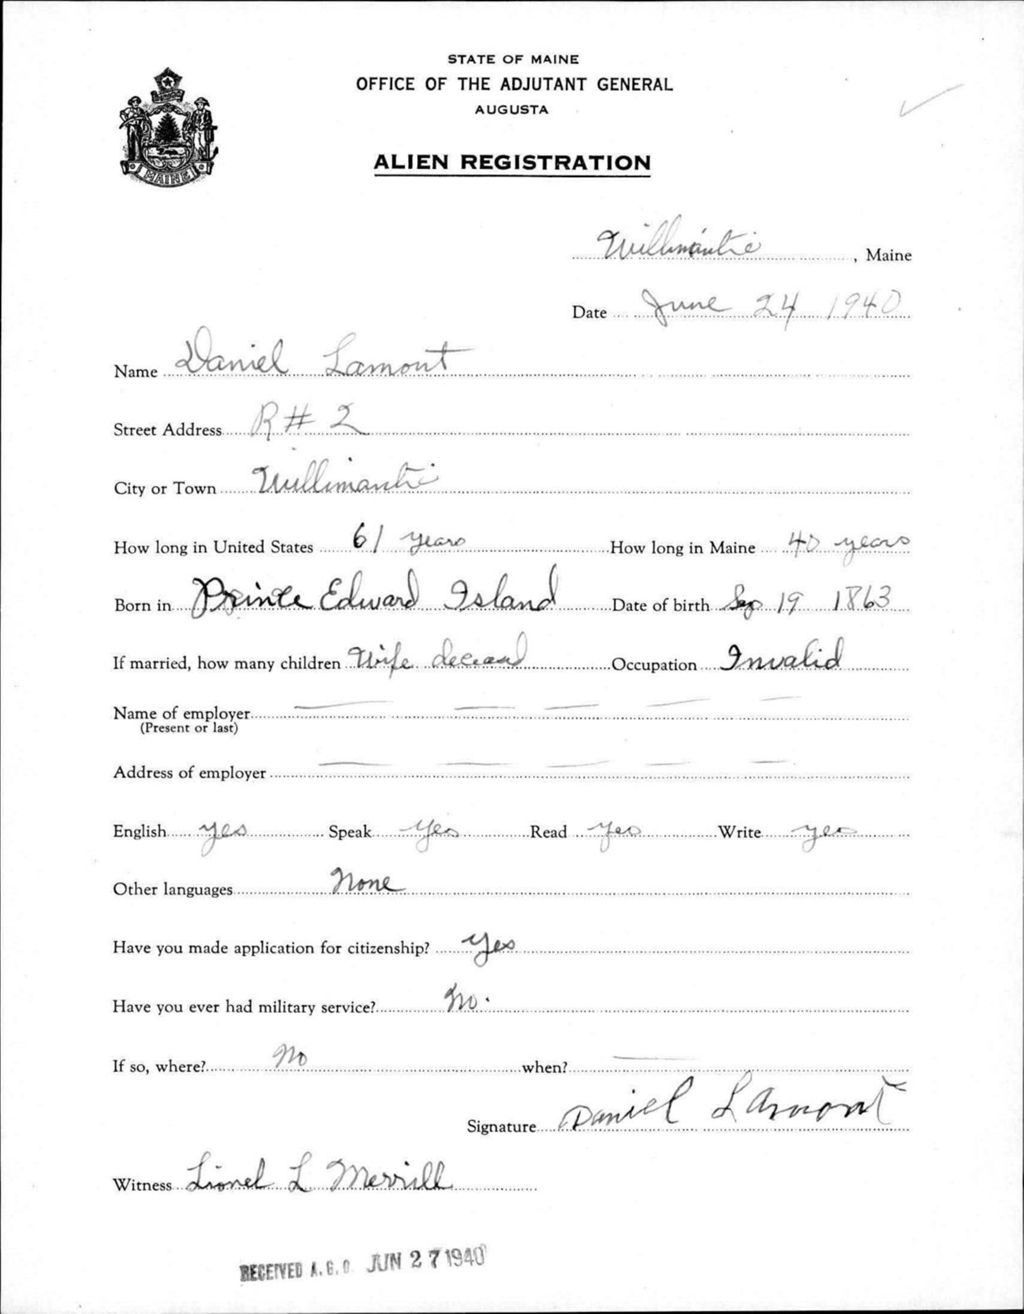 STATE OF MAINE
OFFICE OF THE ADJUTANT GENERAL
AUGUSTA
ALIEN REGISTRATION
MAINE
Willimantic, Maine
Date June 24 1940
Name Daniel Lamont
Street Address R#2
City or Town Willimantic
How long in United States 61 years How long in Maine 40 years
Born in Prince Edward Island Date of birth Sep 19 1863
If married, how many children Wife deceased Occupation Invalid
Name of employer — — — — —
(Present or last)
Address of employer — — — — —
English yes Speak yes Read yes Write yes
Other languages None
Have you made application for citizenship? yes
Have you ever had military service? No.
If so, where? No when? —
Signature Daniel Lamont
Witness Lionel L Merrill
RECEIVED A.G.O. JUN 27 1940